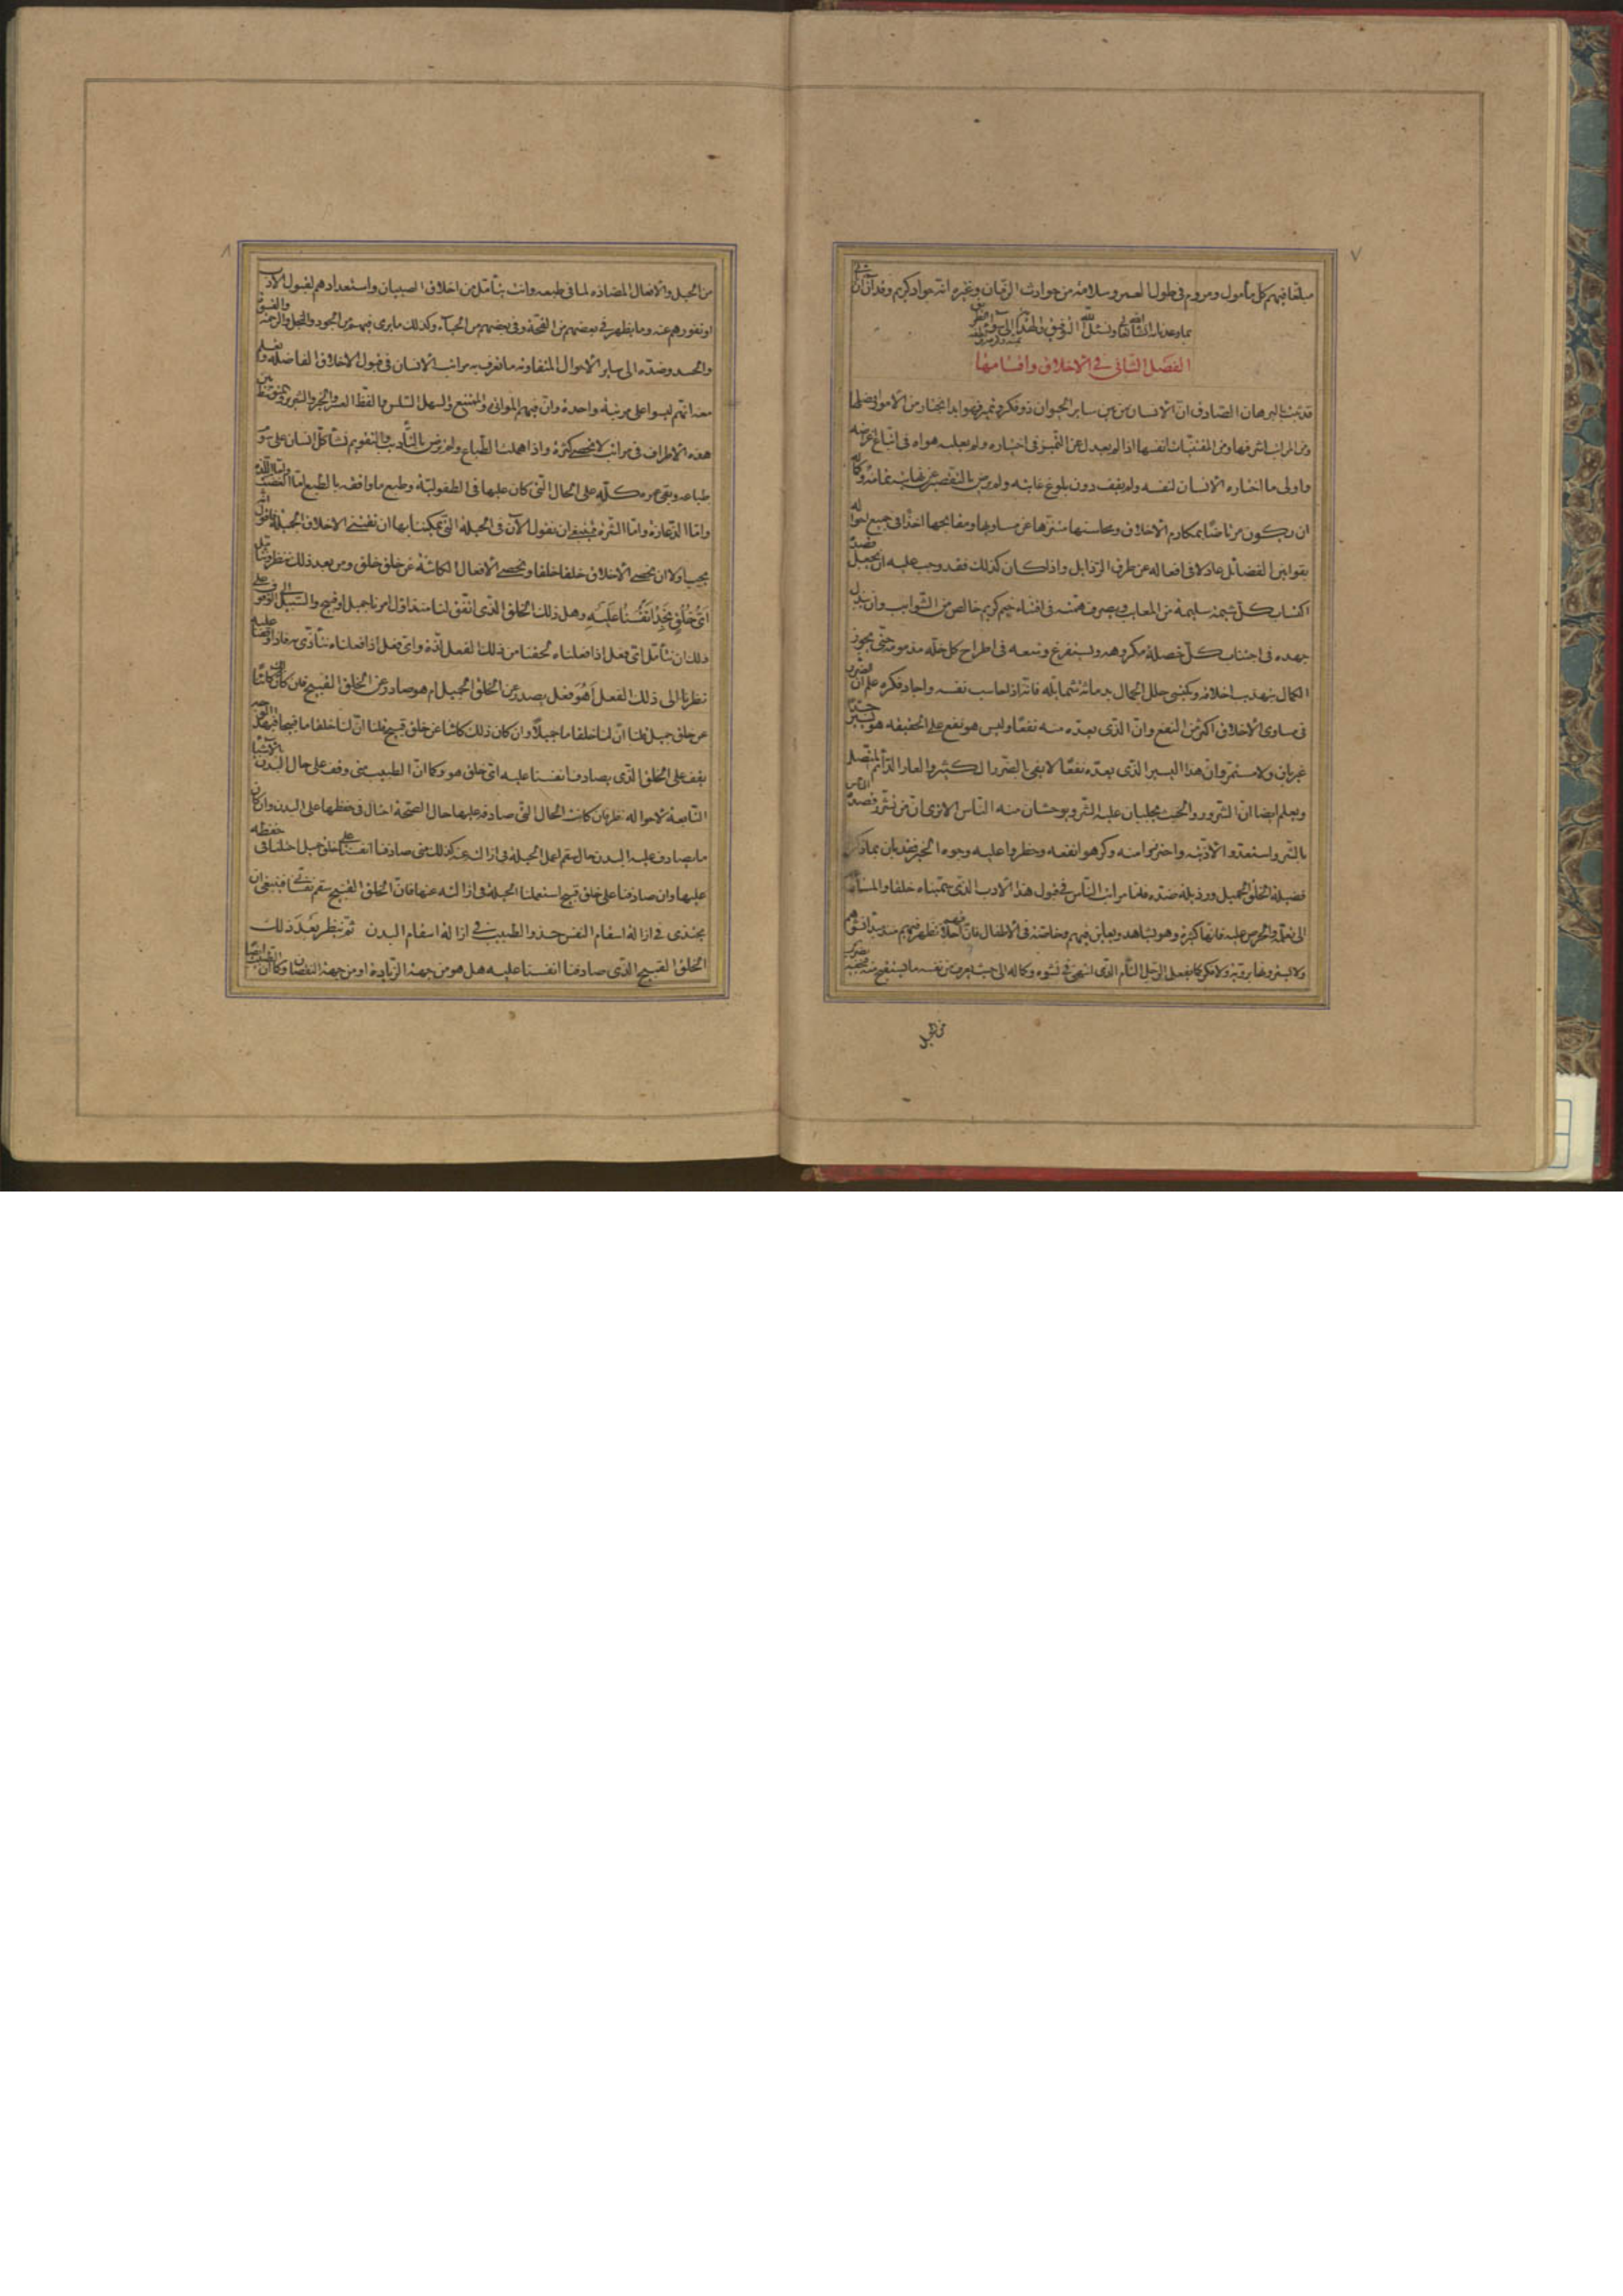 ٧
مبلغا فيهم كل مأمول ومروم في طول العمر وسلامة من حوادث الزمان وغيره انه جواد كريم وقد آن ان
بما وعدناه ان شاء الله تعالى ونسئل الله التوفيق والهداية الى سواء الطريق
الفصل الثاني في الاخلاق واقسامها
قد ثبت بالبرهان الصادق ان الانسان من بين ساير الحيوان ذو فكر وتميز فهو ابدا يختار من الامور افضلها
ومن المراتب اشرفها ومن المقتنيات انفسها اذا لم يعدل عن التميز في اختياره ولم يغلبه هواه في اتباع اغراضه
واولى ما اختاره الانسان لنفسه ولم يقف دون بلوغ غايته ولم يرض بالتقصير عن نهايته تمامه وكماله
ان يكون مرتاضا بمكارم الاخلاق ومحاسنها متنزها عن مساويها ومقابحها اخذا في جميع احواله
بقوانين الفضائل عادلا في افعاله عن طرق الرذايل واذا كان كذلك فقد وجب عليه ان يجعل قصده
اكتساب كل شيمة سليمة من المعايب ويصرف همته في اقتناء خيم كريم خالص من الشوايب وان يبذل
جهده في اجتناب كل خصلة مكروهة ويستفرغ وسعه في اطراح كل خلة مذمومة حتى يحوز
الكمال بتهذيب اخلاقه ويكتسي حلل الجمال بدماثة شمايله فانه اذا حاسب نفسه واجاد فكره علم ان الضرر
في مساوي الاخلاق اكثر من النفع وان الذي يعده منه نفعا وليس هو نفع على الحقيقة هو يسير جدا
غير باق ولا مستمر وان هذا اليسير الذي يعده نفعا لا يفي بالضرر الكثير والعار الدائم المتصل
ويعلم ايضا ان الشرور والخبث يجلبان عليه الشر ويوحشان منه الناس الا ترى ان من تشرر قصده الناس
بالشر واستعدوا لاذيته واحترسوا منه وكرهوا نفعه وحظروا عليه وجوه الخير فقد بان بما ذكر
فضيلة الخلق الجميل ورذيلة ضده فاما مراتب الناس في قبول هذا الادب الذي سميناه خلقا والمسارعة
الى تعلمه والحرص عليه فانها كثيرة وهو يشاهد ويعاين فيهم وخاصة في الاطفال فان اخلاقهم تظهر فيهم منذ بدء نشوهم
ولا يسترونها بروية ولا فكر كما يفعل الرجل التام الذي انتهى في نشوه وكماله الى حيث يعرف من نفسه ما يستقبح منه فيخفيه بضروب
من الحيل
٨
من الحيل والافعال المضادة لما في طبعه وانت تتأمل من اخلاق الصبيان واستعدادهم لقبول الادب
او نفورهم عنه وما يظهر في بعضهم من القحة وفي بعضهم من الحياء وكذلك ما يرى فيهم من الجود والبخل والرحمة والقسوة
والحسد وضده الى ساير الاحوال المتفاوتة ما تعرف به مراتب الانسان في قبول الاخلاق الفاضلة وتعلم
معه انهم ليسوا على مرتبة واحدة وان فيهم المواتي والممتنع والسهل السلس والفظ العسر والخير والشرير والمتوسطين بين
هذه الاطراف في مراتب لا تحصى كثرة واذا اهملت الطباع ولم ترض بالتأديب والتقويم نشأ كل انسان على سوم
طباعه وبقي عمره كله على الحال التي كان عليها في الطفولية وطبع ما وافقه بالطبع اما الغضب واما اللذة
واما الدعارة واما الشره فينبغي ان نقول الآن في الحيلة التي يمكننا بها ان نقتني الاخلاق الجميلة فاقول انه
يجب اولا ان نحصي الاخلاق خلقا خلقا ونحصي الافعال الكائنة عن خلق خلق ومن بعد ذلك ننظر ونتأمل
اي خلق نجد انفسنا عليه وهل ذلك الخلق الذي اتفق لنا منذ اول امرنا جميل او قبيح والسبيل الى الوقوف على
ذلك ان نتأمل اي فعل اذا فعلناه لحقنا من ذلك الفعل لذة واي فعل اذا فعلناه نتأذى به فاذا وقفنا عليه
نظرنا الى ذلك الفعل أهو فعل يصدر عن الخلق الجميل ام هو صادر عن الخلق القبيح فان كان ذلك كائنا
عن خلق جميل قلنا ان لنا خلقا ما جميلا وان كان ذلك كائنا عن خلق قبيح قلنا ان لنا خلقا ما قبيحا فبهذا الوجه
نقف على الخلق الذي يصادف انفسنا عليه اي خلق هو وكما ان الطبيب متى وقف على حال البدن بالاشياء
التابعة لاحواله نظر فان كانت الحال التي صادفه عليها حال الصحة احتال في حفظها على البدن وان كان
ما يصادف عليه البدن حال سقم اعمل الحيلة في ازالته عنه كذلك متى صادفنا انفسنا على خلق جميل احتلنا في حفظه
عليها وان صادفنا على خلق قبيح استعملنا الحيلة في ازالته عنها فان الخلق القبيح سقم نفساني فينبغي ان
نحتذي في ازالة اسقام النفس حذو الطبيب في ازالة اسقام البدن ثم ننظر بعد ذلك
الخلق القبيح الذي صادفنا انفسنا عليه هل هو من جهة الزيادة او من جهة النقصان وكما ان الطبيب ايضا